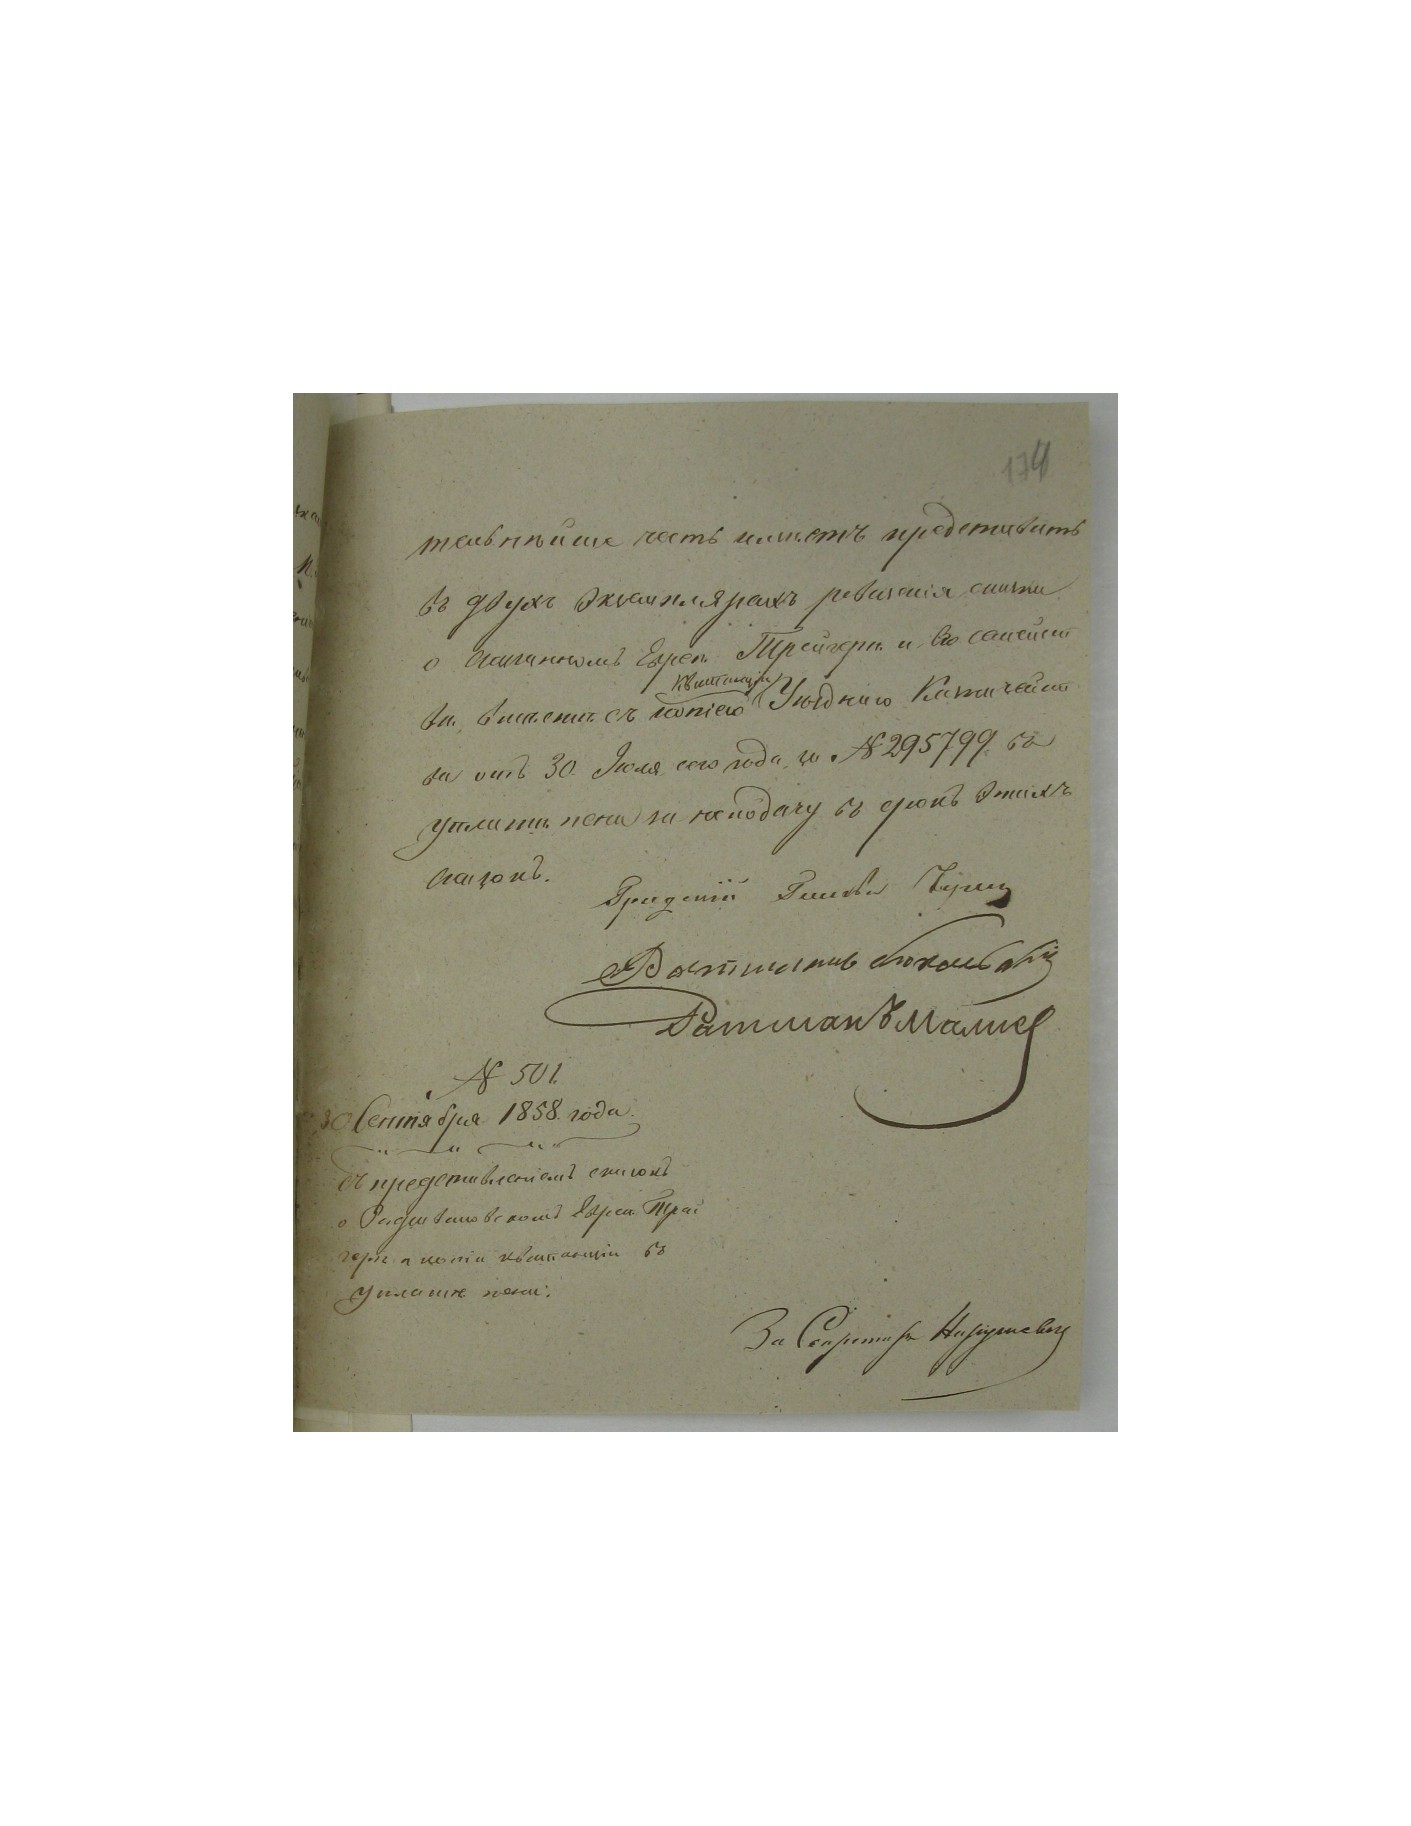 174
тельнѣйше честь имѣетъ представить
въ двухъ экземплярахъ ревизскія сказки
о сказанномъ Евреѣ Трейгерѣ и его семейст
ва, вмѣстѣ съ копіею квитанціи Уѣзднаго Казначейст
ва отъ 30 Іюля сего года за № 295799 въ
уплатѣ пени за неподачу въ срокъ этихъ
сказокъ.
Градскій Глава
Ратманъ
Ратманъ Малис
№ 501.
30 Сентября 1858 года
Съ представленіемъ сказокъ
о Евреѣ Трей
герѣ и копіи квитанціи въ
уплатѣ пени.
За Секретаря